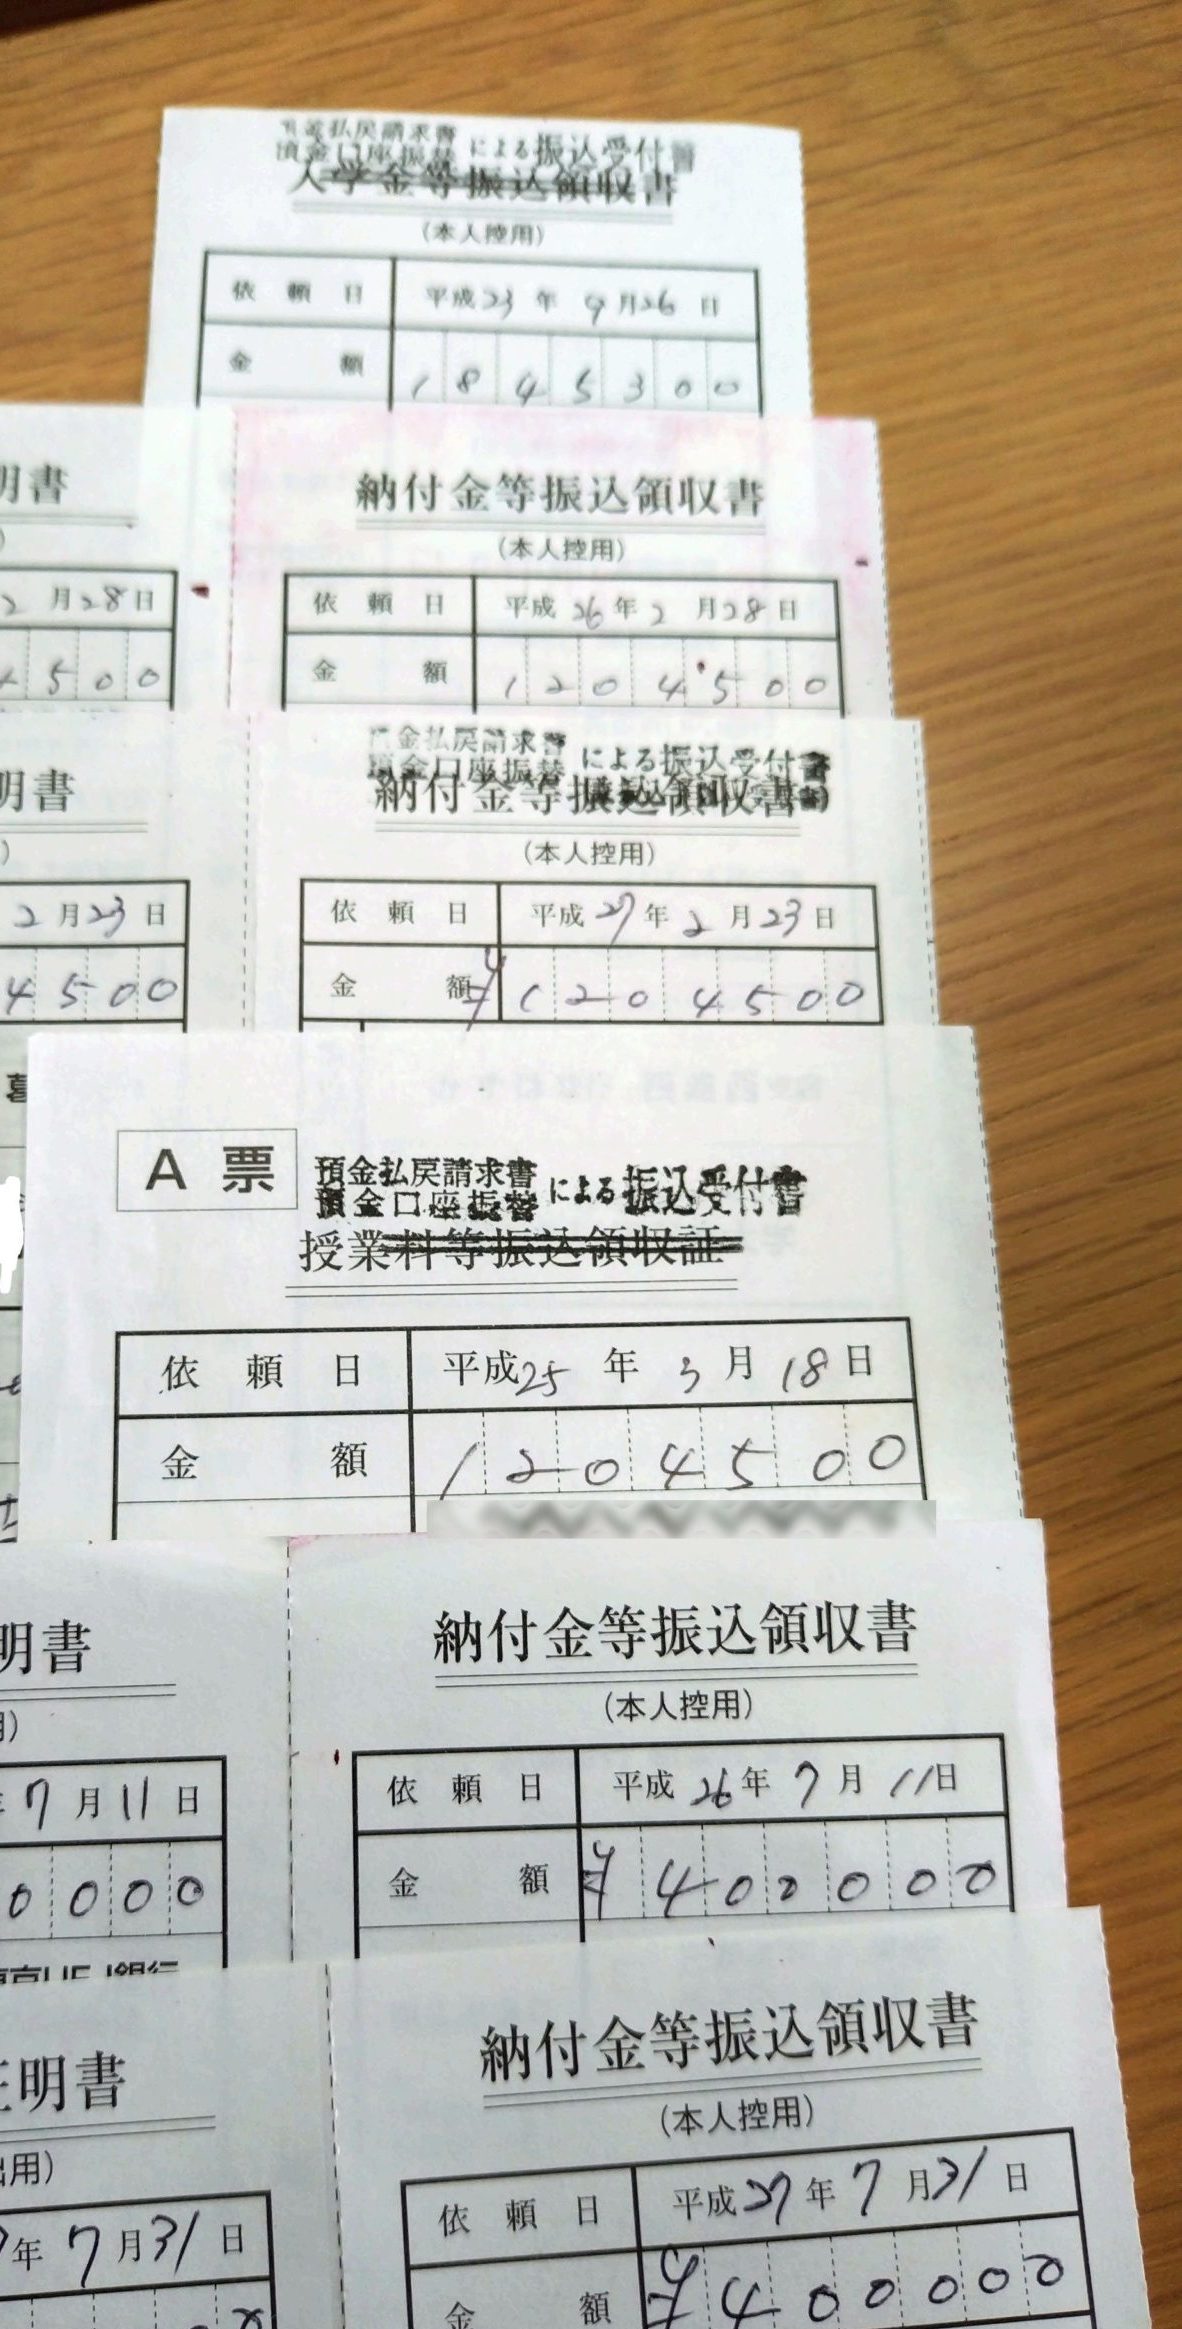 預金払戻請求書
預金口座振替 による振込受付書
入学金等振込領収書
(本人控用)
依頼日 平成23年9月26日
金額 1845300
明書
納付金等振込領収書
)
(本人控用)
2月28日
依頼日 平成26年2月28日
4500
金額 1204500
預金払戻請求書
預金口座振替 による振込受付書
明書
納付金等振込領収書
)
(本人控用)
2月23日
依頼日 平成27年2月23日
4500
金額 ¥1204500
A票
預金払戻請求書
預金口座振替 による振込受付書
授業料等振込領収証
依頼日 平成25年3月18日
金額 1204500
明書
納付金等振込領収書
用)
(本人控用)
年7月11日
依頼日 平成26年7月11日
0000
金額 ¥400000
東京UFJ銀行
証明書
納付金等振込領収書
出用)
(本人控用)
年7月31日
依頼日 平成27年7月31日
金額 ¥400000